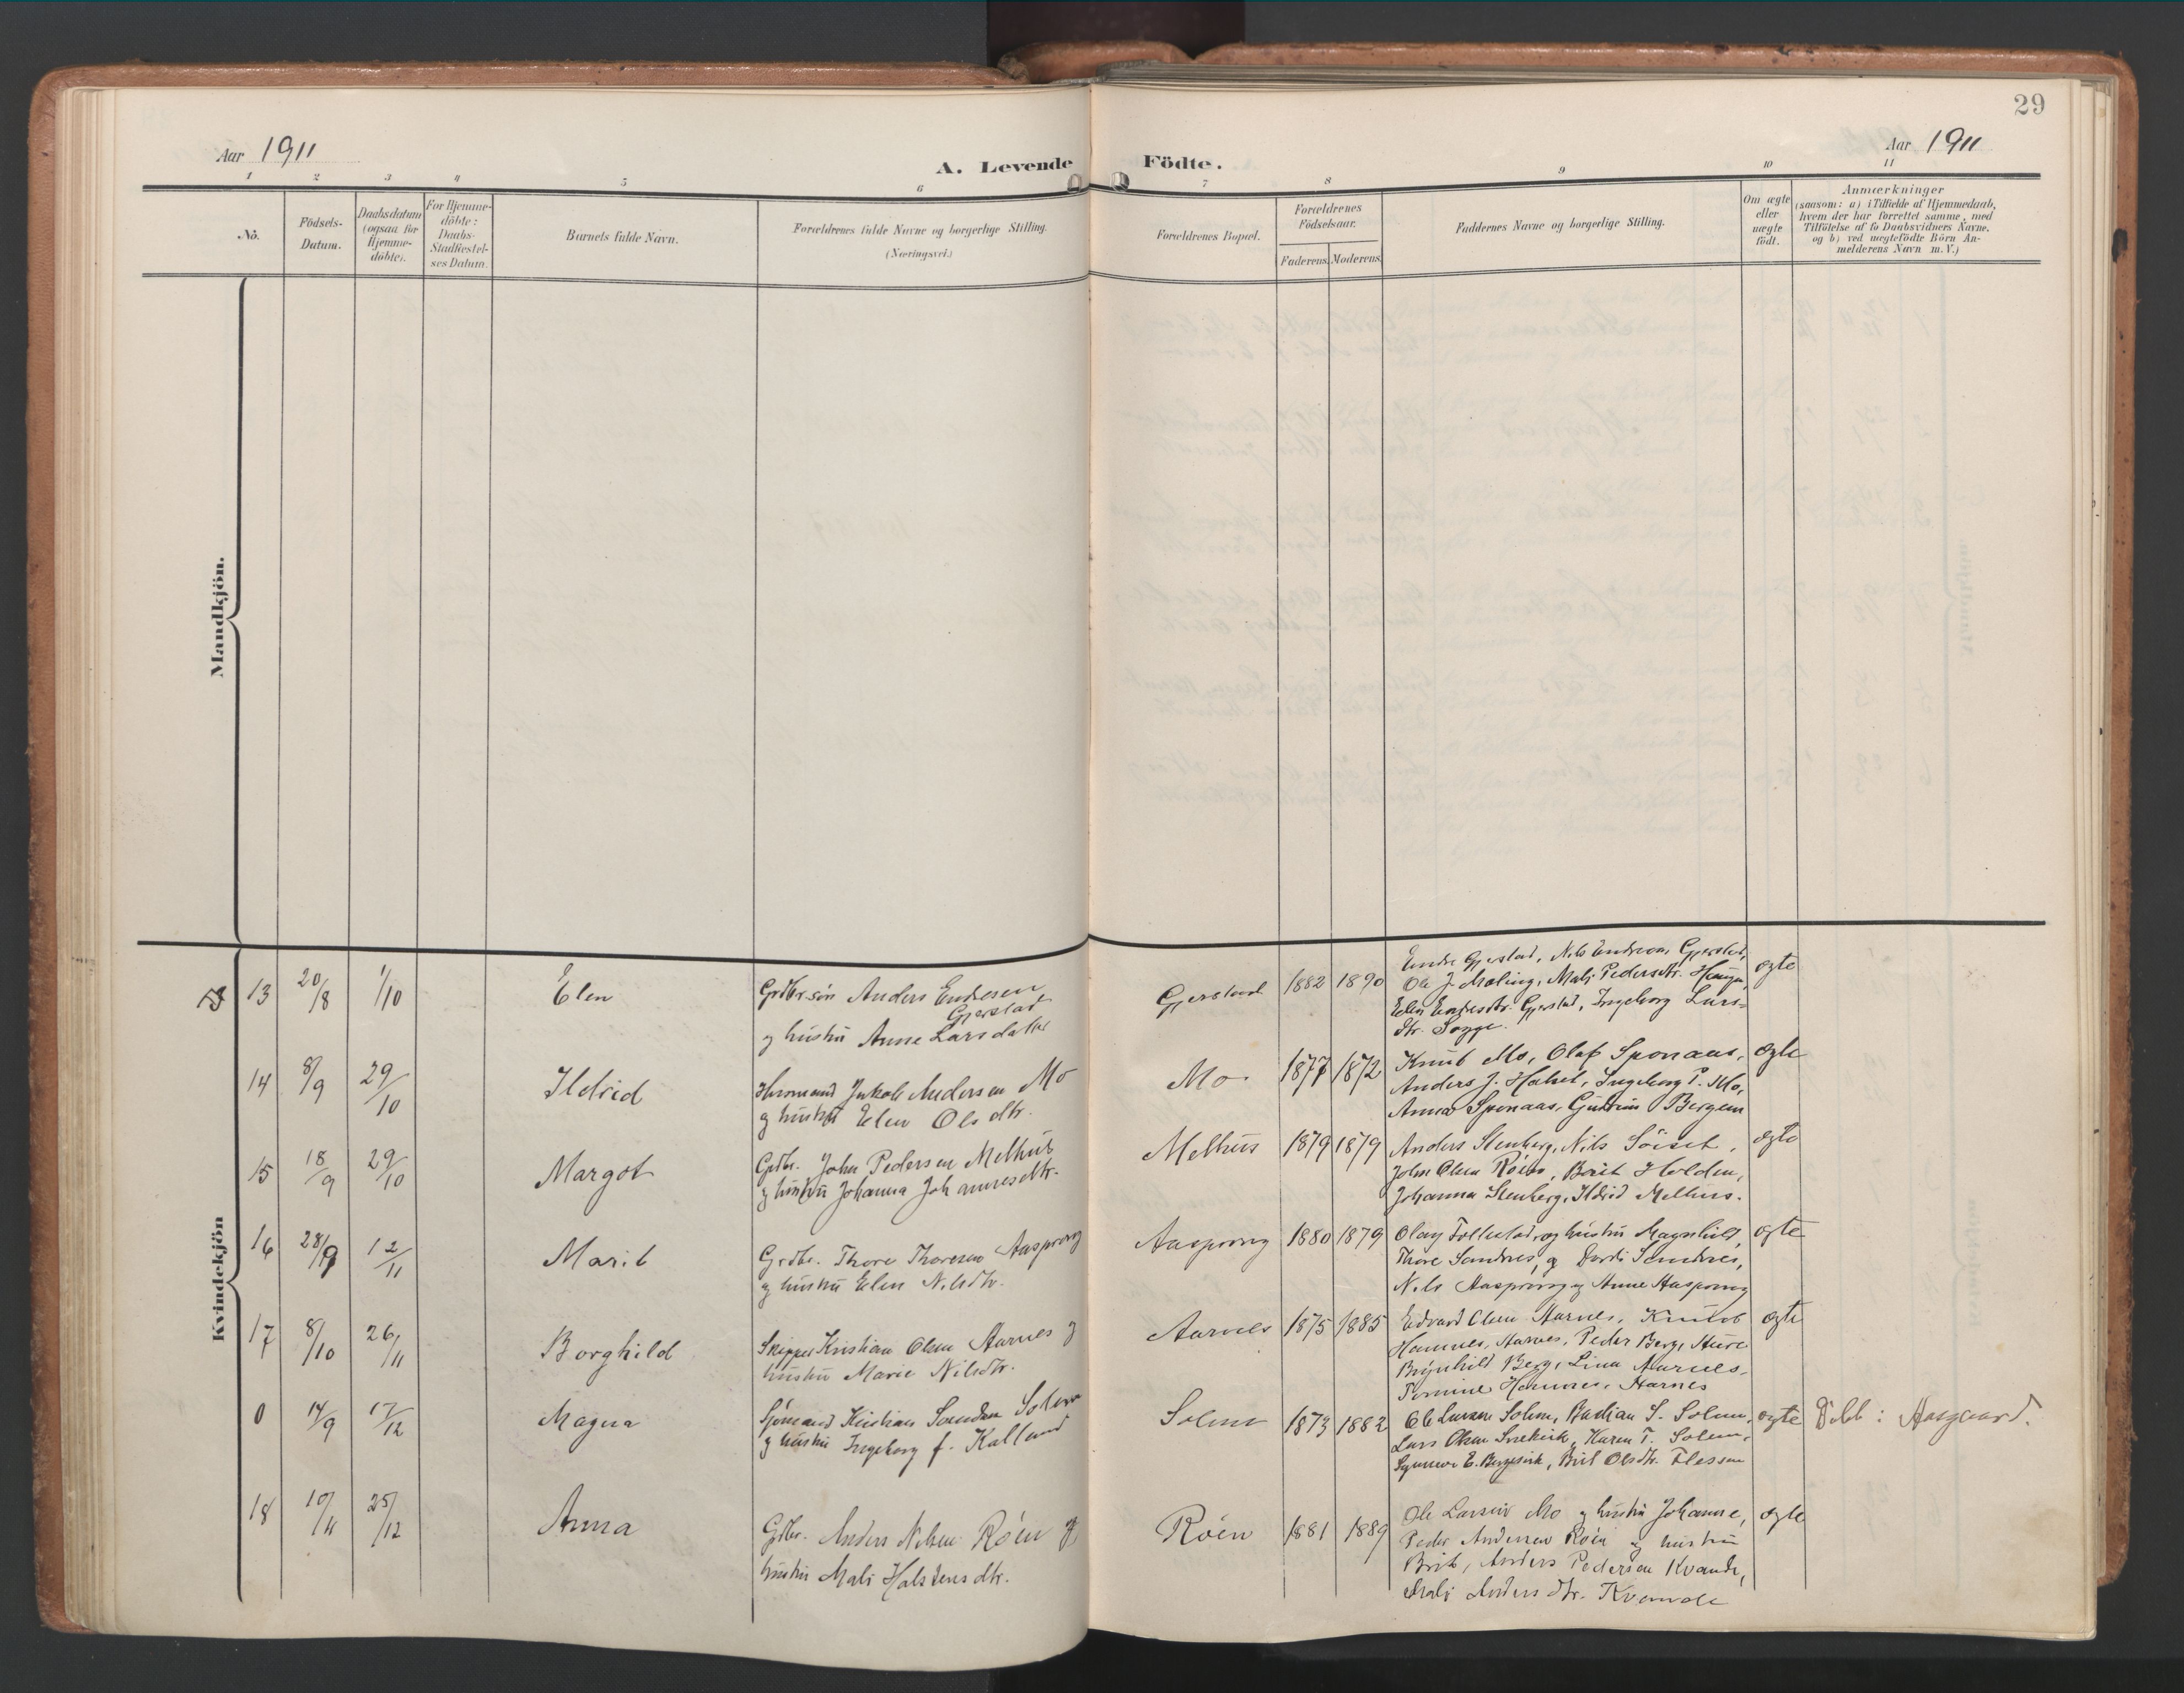 29
Aar 1911
A. Levende Födte.
Aar 1911
1 2 3 4 5 6 7 8 9 10 11
No.
Födsels-Datum.
Daabsdatum (ogsaa for Hjemme-döbte).
For Hjemme-döbte: Daabs-Stadfæstel-ses Datum.
Barnets fulde Navn.
Forældrenes fulde Navne og borgerlige Stilling.
(Næringsvei.)
Forældrenes Bopæl.
Forældrenes Födselsaar.
Faderens. Moderens.
Faddernes Navne og borgerlige Stilling.
Om ægte eller uægte födt.
Anmærkninger
(saasom: a) i Tilfælde af Hjemmedaab,
hvem der har forrettet samme, med
Tilföielse af to Daabsvidners Navne,
og b) ved uægtefödte Börn An-
melderens Navn m. V.)
Mandkjön.
Kvindekjön
13 20/8 1/10 Elen
Grdbr.sön Anders Endresen
Gjerstad
og hustru Anne Larsdatter
Gjerstad 1882 1890
Endre Gjerstad, Nils Endresen Gjerstad,
Ole J. Moling, Mali Pedersdtr. Hougen,
Elen Endresdtr. Gjerstad, Ingeborg Lars-
dtr. Sogge.
ægte
14 8/9 29/10 Ildrid
Husmand Jakob Andersen Mo
og hustru Elen Olsdtr.
Mo 1877 1872
Knut Mo, Olaf Sponaas,
Anders J. Halset, Ingeborg P. Mo,
Anna Sponaas, Gudrun Bergem
ægte
15 18/9 29/10 Margot
Grdbr. John Pedersen Melhus
og hustru Johanna Johannesdtr.
Melhus 1879 1879
Anders Stenberg, Nils Söiset,
John Olsen Röen, Berit Holden,
Johanna Stenberg, Ildrid Melhus.
ægte
16 28/9 12/11 Marit
Grdbr. Thore Thoresen Aasprong
og hustru Elen Nilsdtr.
Aasprong 1880 1879
Olay Follestad, og hustru Magnhild,
Thore Sandnes, og Dordi Sandnes,
Nils Aasprong og Anne Aasprong
ægte
17 8/10 26/11 Borghild
Skipper Kristian Olsen Aarnes og
hustru Marie Nilsdtr.
Aarnes 1875 1885
Edvard Olsen Aarnes, Knut
Hamnes, Aarnes, Peder Berg,
Brynhild Berg, Lina Aarnes,
Hamnes, Aarnes
ægte
0 14/9 17/12 Magna
Sjömand Kristian Solem
og hustru Ingeborg f. Kalland
Solem 1873 1882
Ole Larsen Solem, Bastian S. Solem,
Lars Olsen, Karen T. Solem,
Brit Olsdtr. Flessen
ægte
Döbt: Aasgaard.
18 10/11 25/12 Anna
Grdbr. Anders Nilsen Röen og
hustru Mali Halstensdtr.
Röen 1881 1889
Ole Larsen Mo og hustru Johanne,
Peder Andersen Röen og hustru
Brit, Anders Pedersen Kvande,
Mali Andersdtr. Kvande
ægte